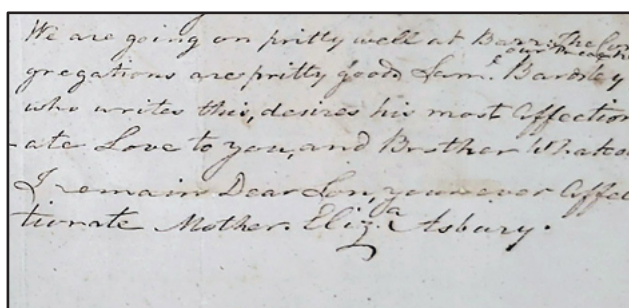 We are going on pritty well at Barr. The Con
gregations are pritty good Sam.l Bardsley
who writes this, desires his most affection
-ate Love to you, and Brother Whatco
I remain Dear Son, your ever Affec
tionate Mother. Eliz.a Asbury.